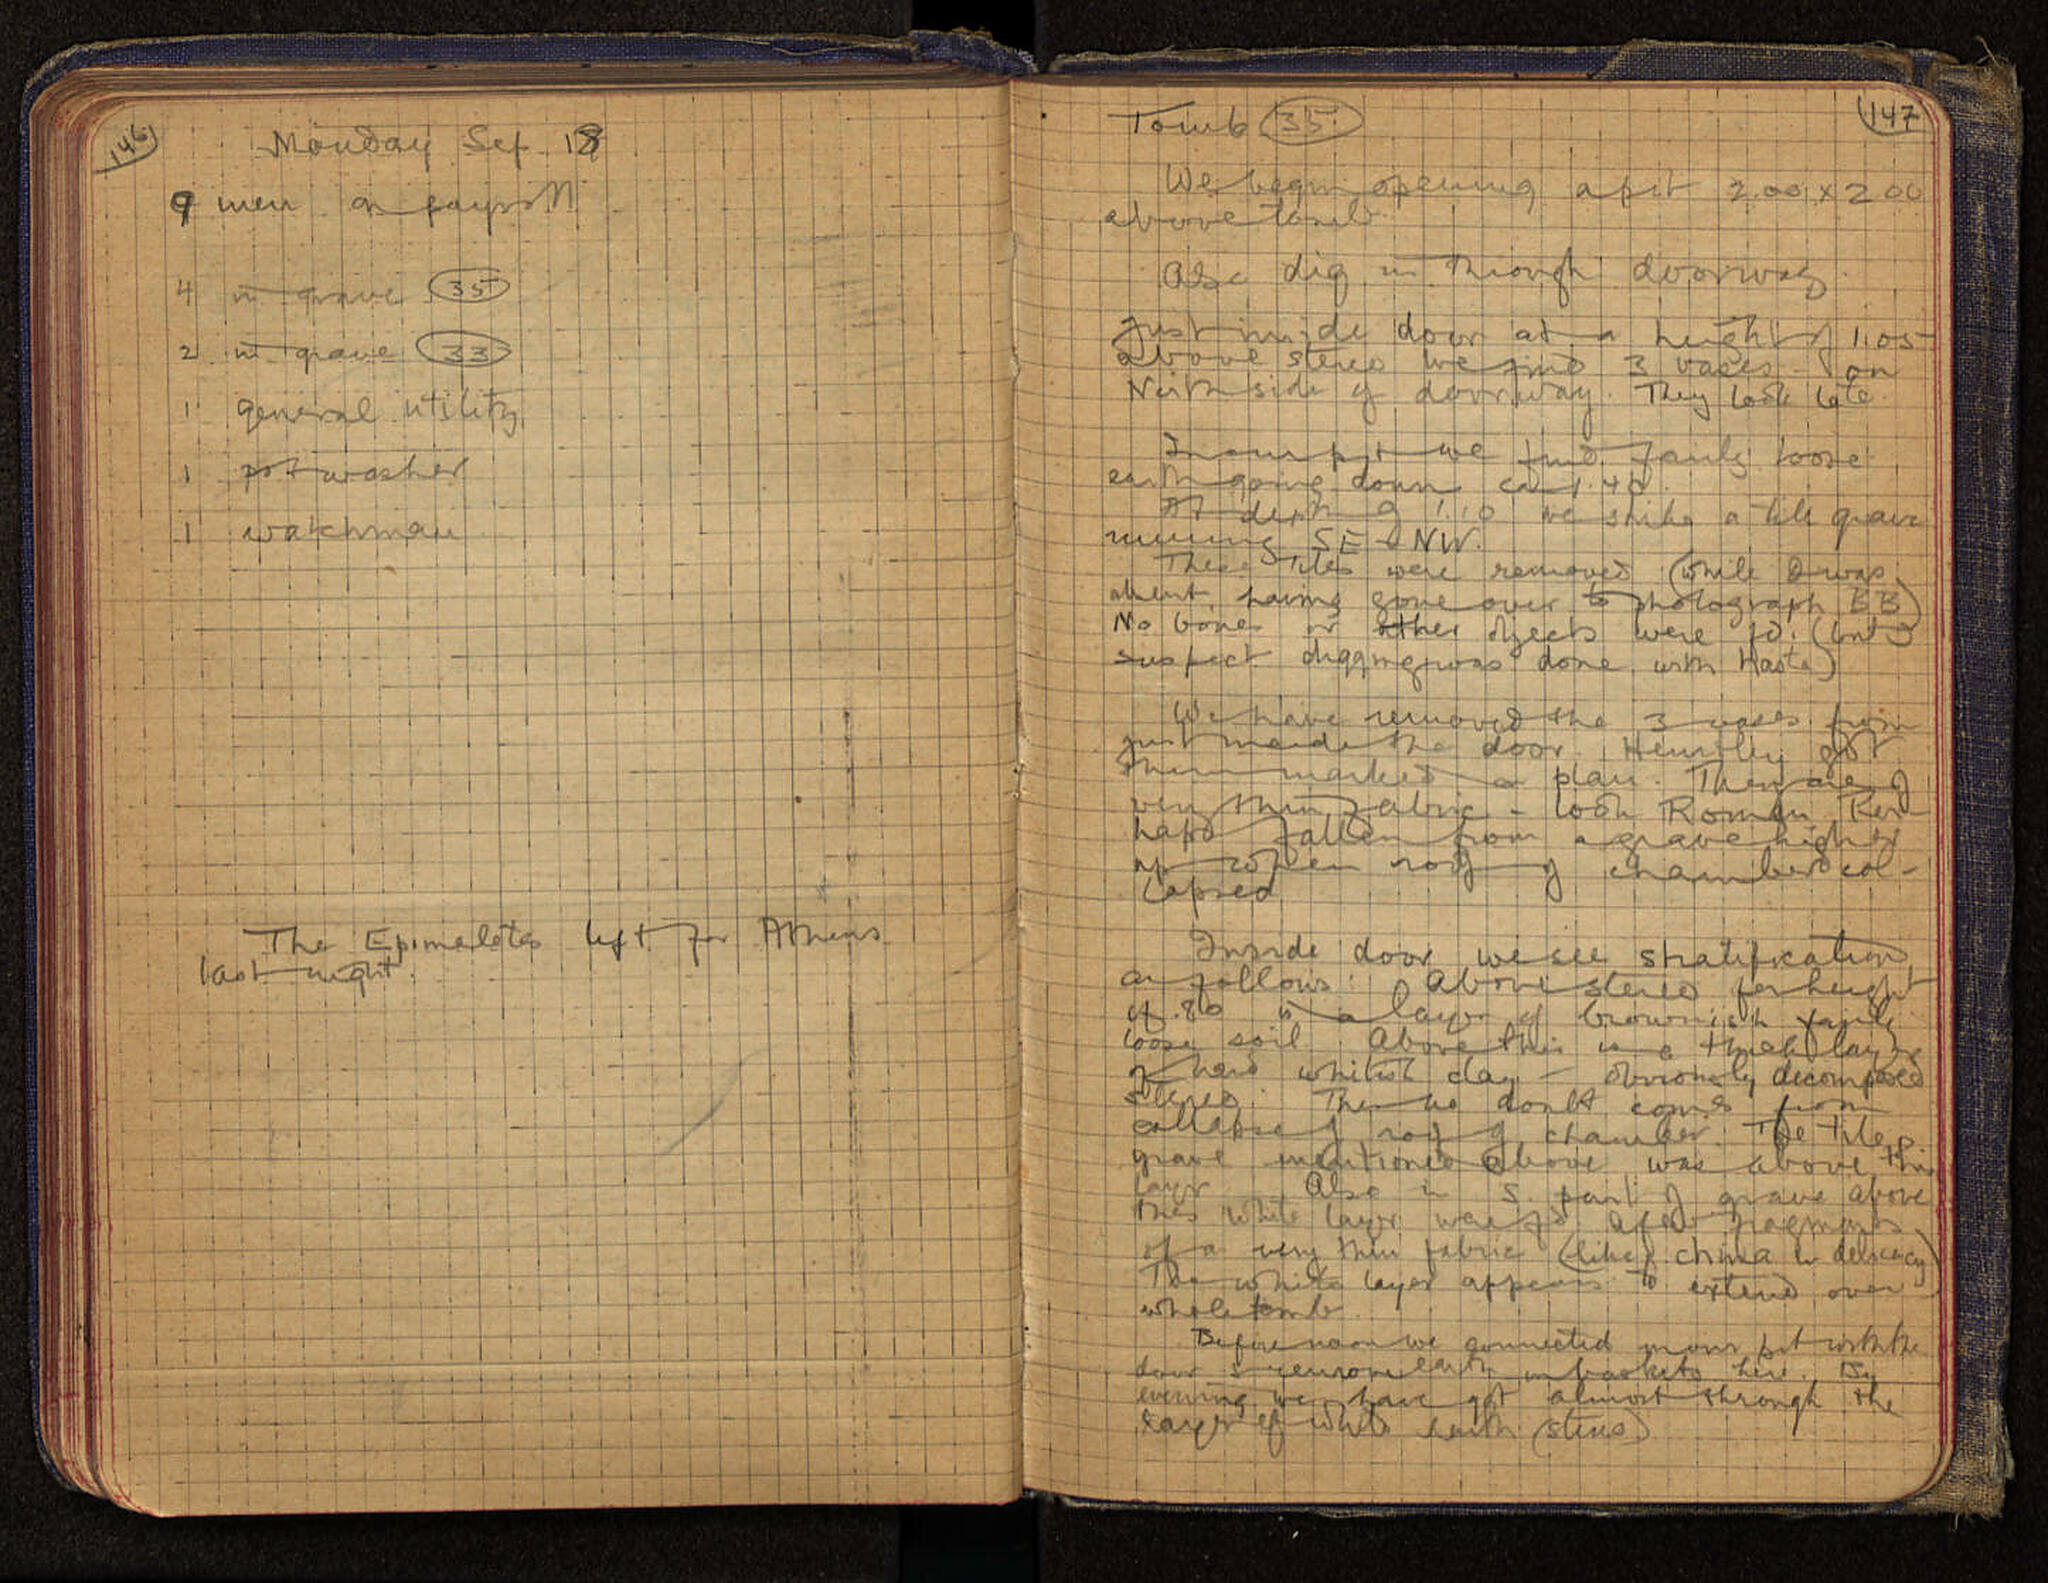 146
Monday Sep 18
9 men on payroll
4 in grave 35
2 in grave 33
1 general utility
1 pot washer
1 watchman
The Epimeletes left for Athens
last night.
147
Tomb 35
We begin opening a pit 2.00 x 2.00
above tomb.
Also dig in through doorway.
Just inside door at a height of 1.05
above stereo we find 3 vases on
North side of doorway. They look late.
In our pit we find fairly loose
earth going down ca 1.40.
At depth of 1.10 we strike a tile grave
running SE - NW.
These tiles were removed (while I was
absent, having gone over to photograph BB)
No bones or other objects were fd. (but I
suspect digging was done with haste)
We have removed the 3 vases from
just inside the door. Hemsley got
them marked on plan. They are of
very thin fabric - look Roman. Per-
haps fallen from a grave higher
up when roof of chamber col-
lapsed
Inside door we see stratification
as follows: Above stereo for height
of .80 is a layer of brownish fairly
loose soil. Above this is a thick layer
of hard whitish clay - obviously decomposed
stereo. This no doubt comes from
collapse of roof of chamber. The tile
grave mentioned above was above this
layer. Also in S. part of grave above
this white layer were fd. a few fragments
of a very thin fabric (like china in delicacy)
The white layer appears to extend over
whole tomb.
Before noon we connected main pit with the
door & remove earth in baskets here. By
evening we have got almost through the
layer of white earth (stereo)